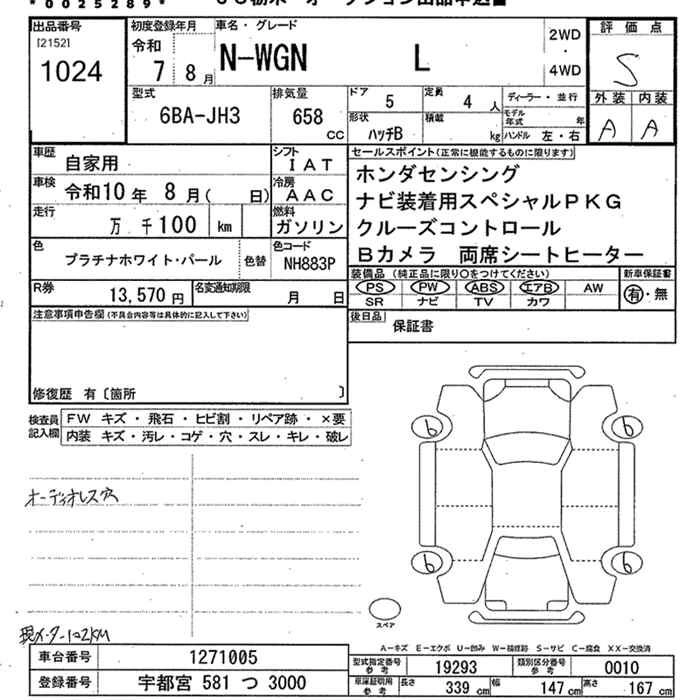 *0025289*
出品番号
[2152]
1024
初度登録年月
令和
7 8月
車名・グレード
N-WGN L
2WD
・
4WD
評価点
S
外装 内装
A A
型式
6BA-JH3
排気量
658
CC
ドア
5
定員
4 人
ディーラー・並行
形状
ハッチB
積載
kg
モデル
年式
年
ハンドル 左・右
車歴
自家用
シフト
IAT
車検
令和10年 8月( 日)
冷房
AAC
走行
万 千100 km
燃料
ガソリン
色
プラチナホワイト・パール
色替
色コード
NH883P
R券
13,570 円
名変通知期限
月 日
セールスポイント(正常に機能するものに限ります)
ホンダセンシング
ナビ装着用スペシャルPKG
クルーズコントロール
Bカメラ 両席シートヒーター
装備品 (純正品に限り○をつけてください)
PS PW ABS エアB AW
SR ナビ TV カワ
新車保証書
有・無
後日品
保証書
注意事項申告欄(不具合内容等は具体的に記入して下さい)
修復歴 有〔箇所 〕
検査員
記入欄
FW キズ・飛石・ヒビ割・リペア跡・×要
内装 キズ・汚レ・コゲ・穴・スレ・キレ・破レ
オーディオレス穴
現メーター102KM
6 6
6 6
スペア
A-キズ E-エクボ U-凹み W-補修跡 S-サビ C-腐食 XX-交換済
車台番号
1271005
登録番号
宇都宮 581 つ 3000
型式指定番号
参考
19293
類別区分番号
参考
0010
車庫証明用
参考
長さ
339 cm
幅
147 cm
高さ
167 cm